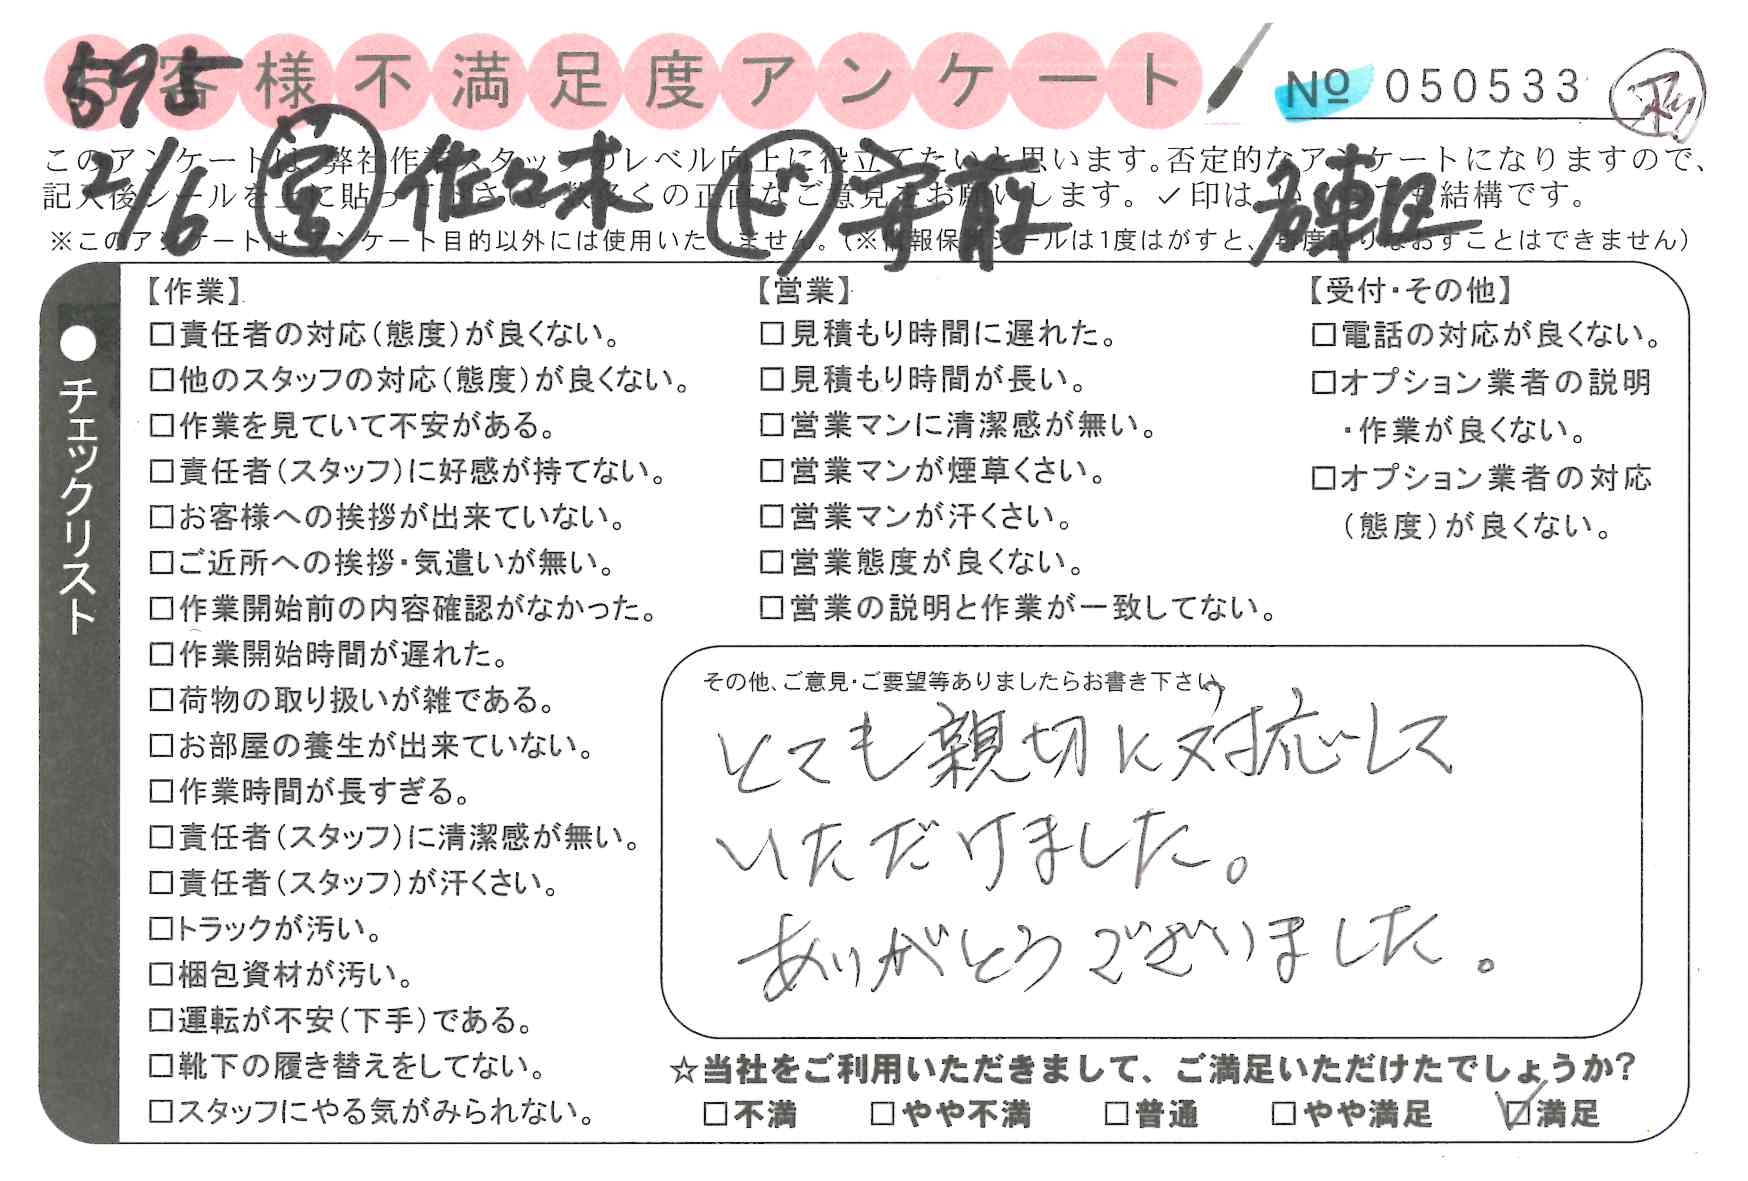 お客様不満足度アンケート
№ 050533
595
2/6 営 佐々木 ド 安前 東区
このアンケートは、弊社作業スタッフのレベル向上に役立てたいと思います。否定的なアンケートになりますので、
記入後シールを上に貼って下さい。数多くの正直なご意見をお願いします。✓印は、いくつでも結構です。
※このアンケートは、アンケート目的以外には使用いたしません。(※情報保護シールは1度はがすと、再度貼りなおすことはできません)
●チェックリスト
【作業】
□責任者の対応(態度)が良くない。
□他のスタッフの対応(態度)が良くない。
□作業を見ていて不安がある。
□責任者(スタッフ)に好感が持てない。
□お客様への挨拶が出来ていない。
□ご近所への挨拶・気遣いが無い。
□作業開始前の内容確認がなかった。
□作業開始時間が遅れた。
□荷物の取り扱いが雑である。
□お部屋の養生が出来ていない。
□作業時間が長すぎる。
□責任者(スタッフ)に清潔感が無い。
□責任者(スタッフ)が汗くさい。
□トラックが汚い。
□梱包資材が汚い。
□運転が不安(下手)である。
□靴下の履き替えをしてない。
□スタッフにやる気がみられない。
【営業】
□見積もり時間に遅れた。
□見積もり時間が長い。
□営業マンに清潔感が無い。
□営業マンが煙草くさい。
□営業マンが汗くさい。
□営業態度が良くない。
□営業の説明と作業が一致してない。
【受付・その他】
□電話の対応が良くない。
□オプション業者の説明
・作業が良くない。
□オプション業者の対応
(態度)が良くない。
その他、ご意見・ご要望等ありましたらお書き下さい。
とても親切に対応して
いただけました。
ありがとうございました。
☆当社をご利用いただきまして、ご満足いただけたでしょうか?
□不満 □やや不満 □普通 □やや満足 ☑満足